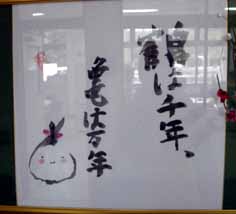 鶴は千年、
亀は万年